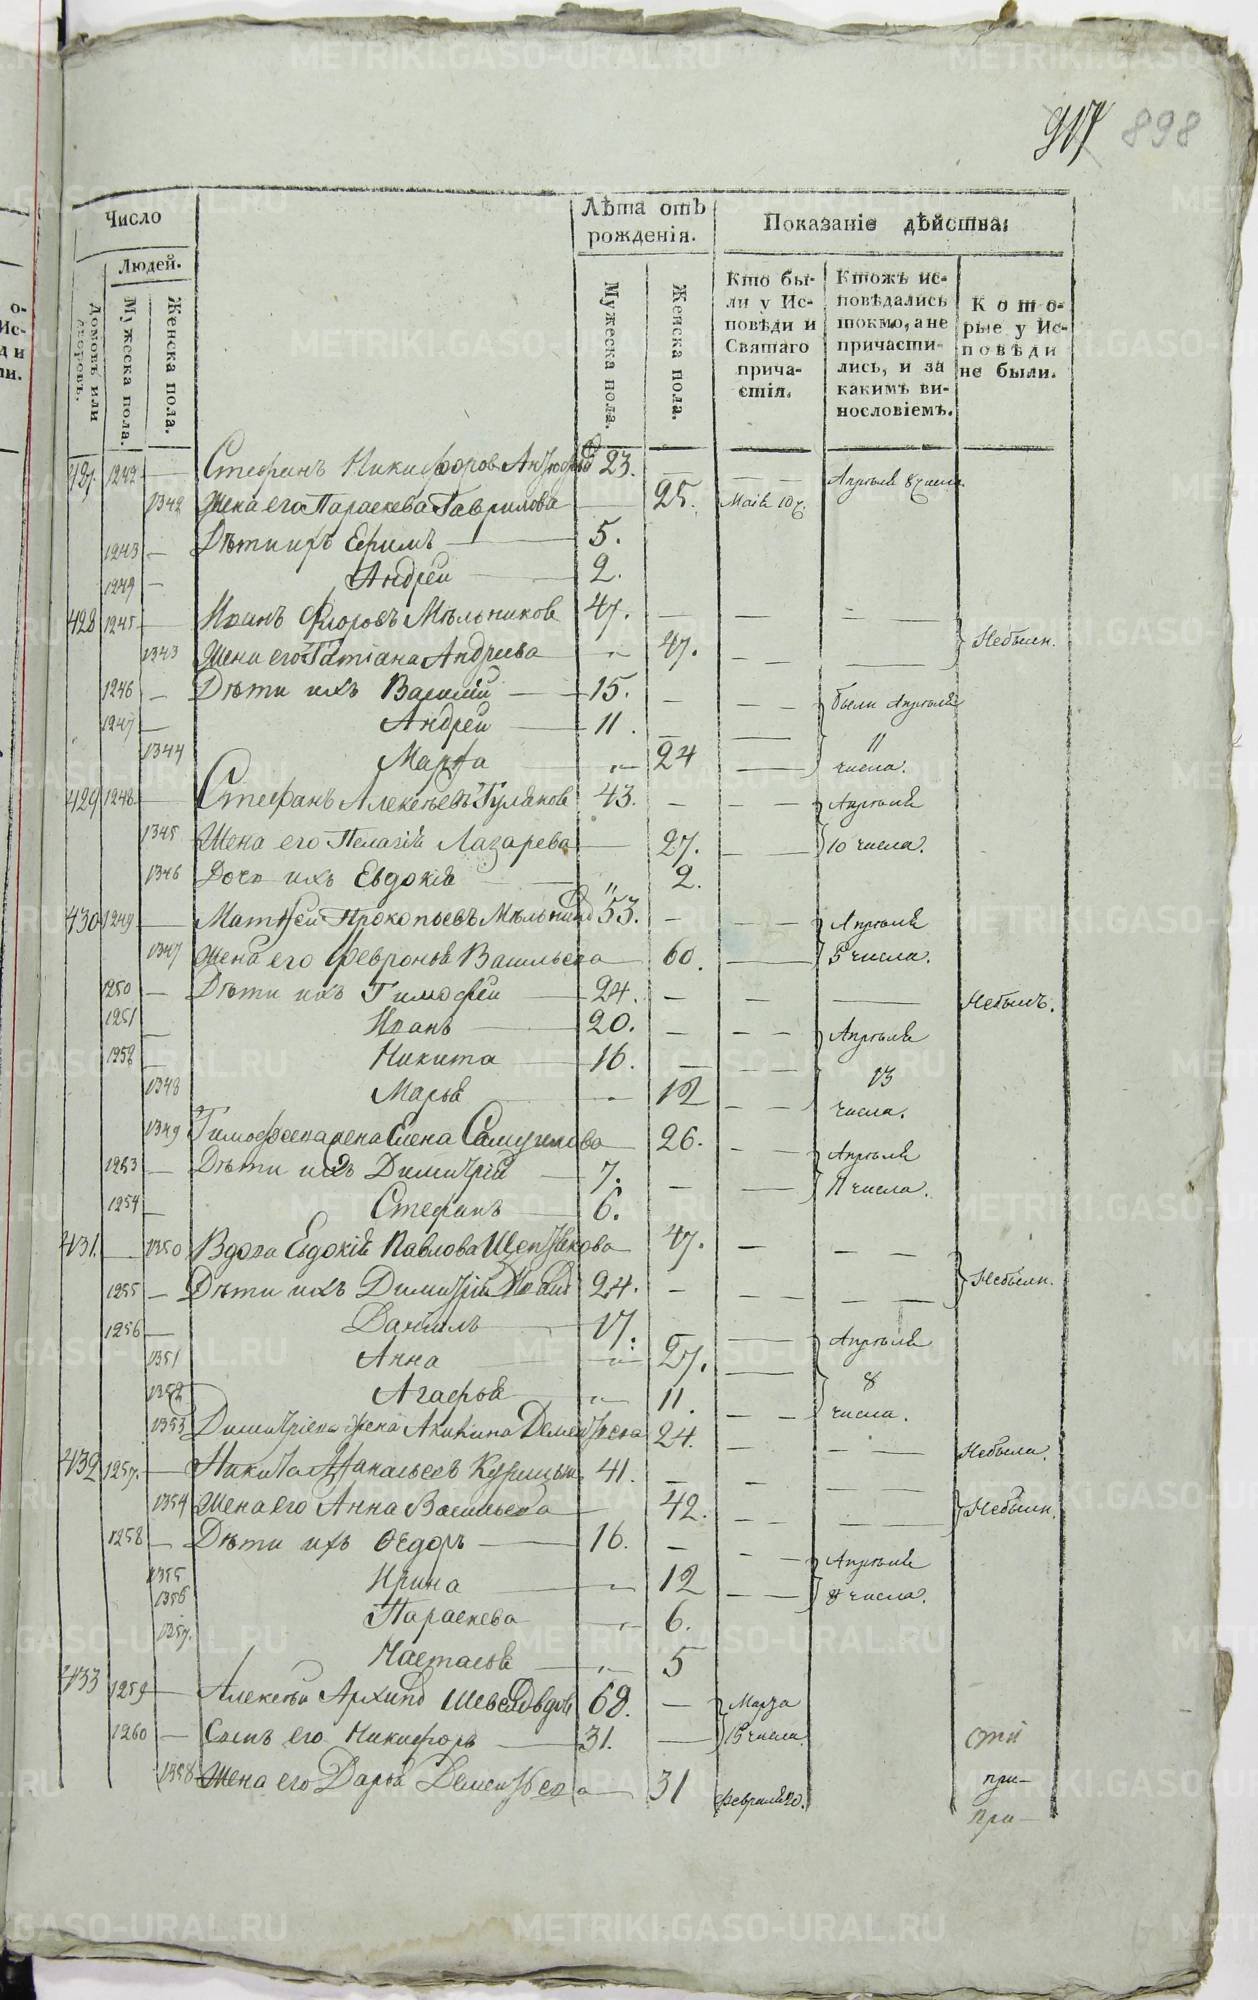 917 898
Число
Людей.
Домовъ или дворовъ.
Мужеска пола.
Женска пола.
Лѣта отъ рожденія.
Мужеска пола.
Женска пола.
Показаніе дѣйства:
Кто бы-
ли у Ис-
повѣди и
Святаго
прича-
стія.
Ктожъ ис-
повѣдались
токмо, а не
причасти-
лись, и за
какимъ ви-
нословіемъ.
Кото-
рые у Ис-
повѣди
не были.
427 1242 — Стефанъ Никифоровъ 23. — Апрѣля 8 числа.
1342 Жена его Параскева Гаврилова — 25. Маія 10
1243 — Дѣти ихъ Ефимъ — 5.
1244 — Андрей — 2.
428 1245 — Иванъ Флоровъ Мѣльников 47. — — —
1343 Жена его Татіана Андреева — 47. — } Небыли.
1246 — Дѣти ихъ Василій — 15. — — были Апрѣля
1247 — Андрей — 11. — — 11
1344 Марѳа — 24 — числа.
429 1248 — Стефанъ Алексѣевъ Гуляков 43. — — Апрѣля
1345 Жена его Пелагія Лазарева — 27. — 10 числа.
1346 Дочь ихъ Евдокія — 2.
430 1249 — Матѳей Прокопьевъ 53. — — Апрѣля
1347 Жена его Февронья Васильева — 60. — 5 числа.
1250 — Дѣти ихъ Тимофей — 24. — — — Небылъ.
1251 — Иванъ — 20. — — Апрѣля
1252 — Никита — 16. — — 13
1348 Марья — 12 — числа.
1349 Тимофеева жена Елена Самуилова — 26. — Апрѣля
1253 — Дѣти ихъ Димитрій — 7. — — 11 числа.
1254 — Стефанъ — 6.
431. — 1350 Вдова Евдокія Павлова 47. — — —
1255 — Дѣти ихъ Димитрій 24. — — — } Небыли.
1256 — Даніилъ — 17. — Апрѣля
1351 Анна — 27. — 8
1352 Агафья — 11. — числа.
1353 Димитріева жена Акилина Дементьева 24. — — Небыла.
432 1257. — Никита 41. — — —
1354 Жена его Анна Васильева — 42. — — } Небыли.
1258 — Дѣти ихъ Ѳедоръ — 16. — — Апрѣля
1355 Ирина — 12 — 8 числа.
1356 Параскева — 6.
1357. Настасья — 5
433 1259 — Алексѣй 68. — Марта
1260 — Сынъ его Никифоръ — 31. — 15 числа.
1358 Жена его Дарья Дементьева — 31 Февраля 20.
при-